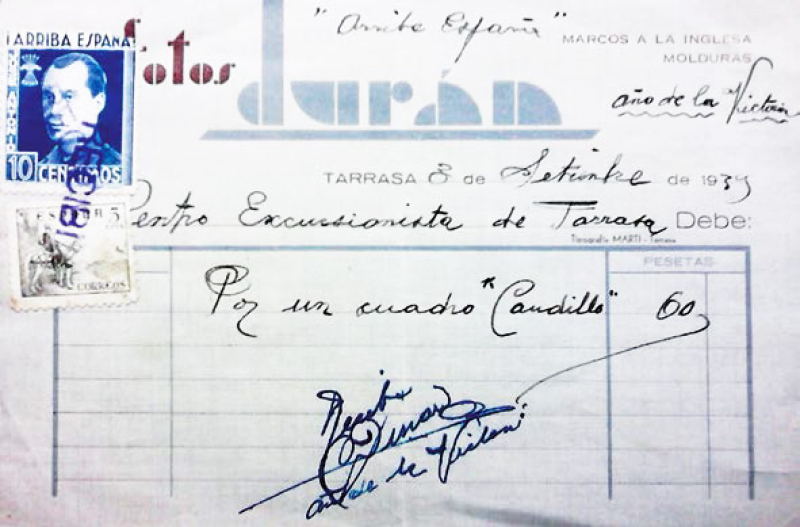 "Arriba España"
ARRIBA ESPAÑA
fotos
durán
MARCOS A LA INGLESA
MOLDURAS
año de la Victoria
10 CENTIMOS
TARRASA 8 de Setiembre de 1939
ESPAÑA 5
CORREOS
Centro Excursionista de Tarrasa Debe:
Tipografía MARTÍ - Tarrasa
PESETAS
Por un cuadro "Caudillo" 60
Recibí
Duran
año de la Victoria